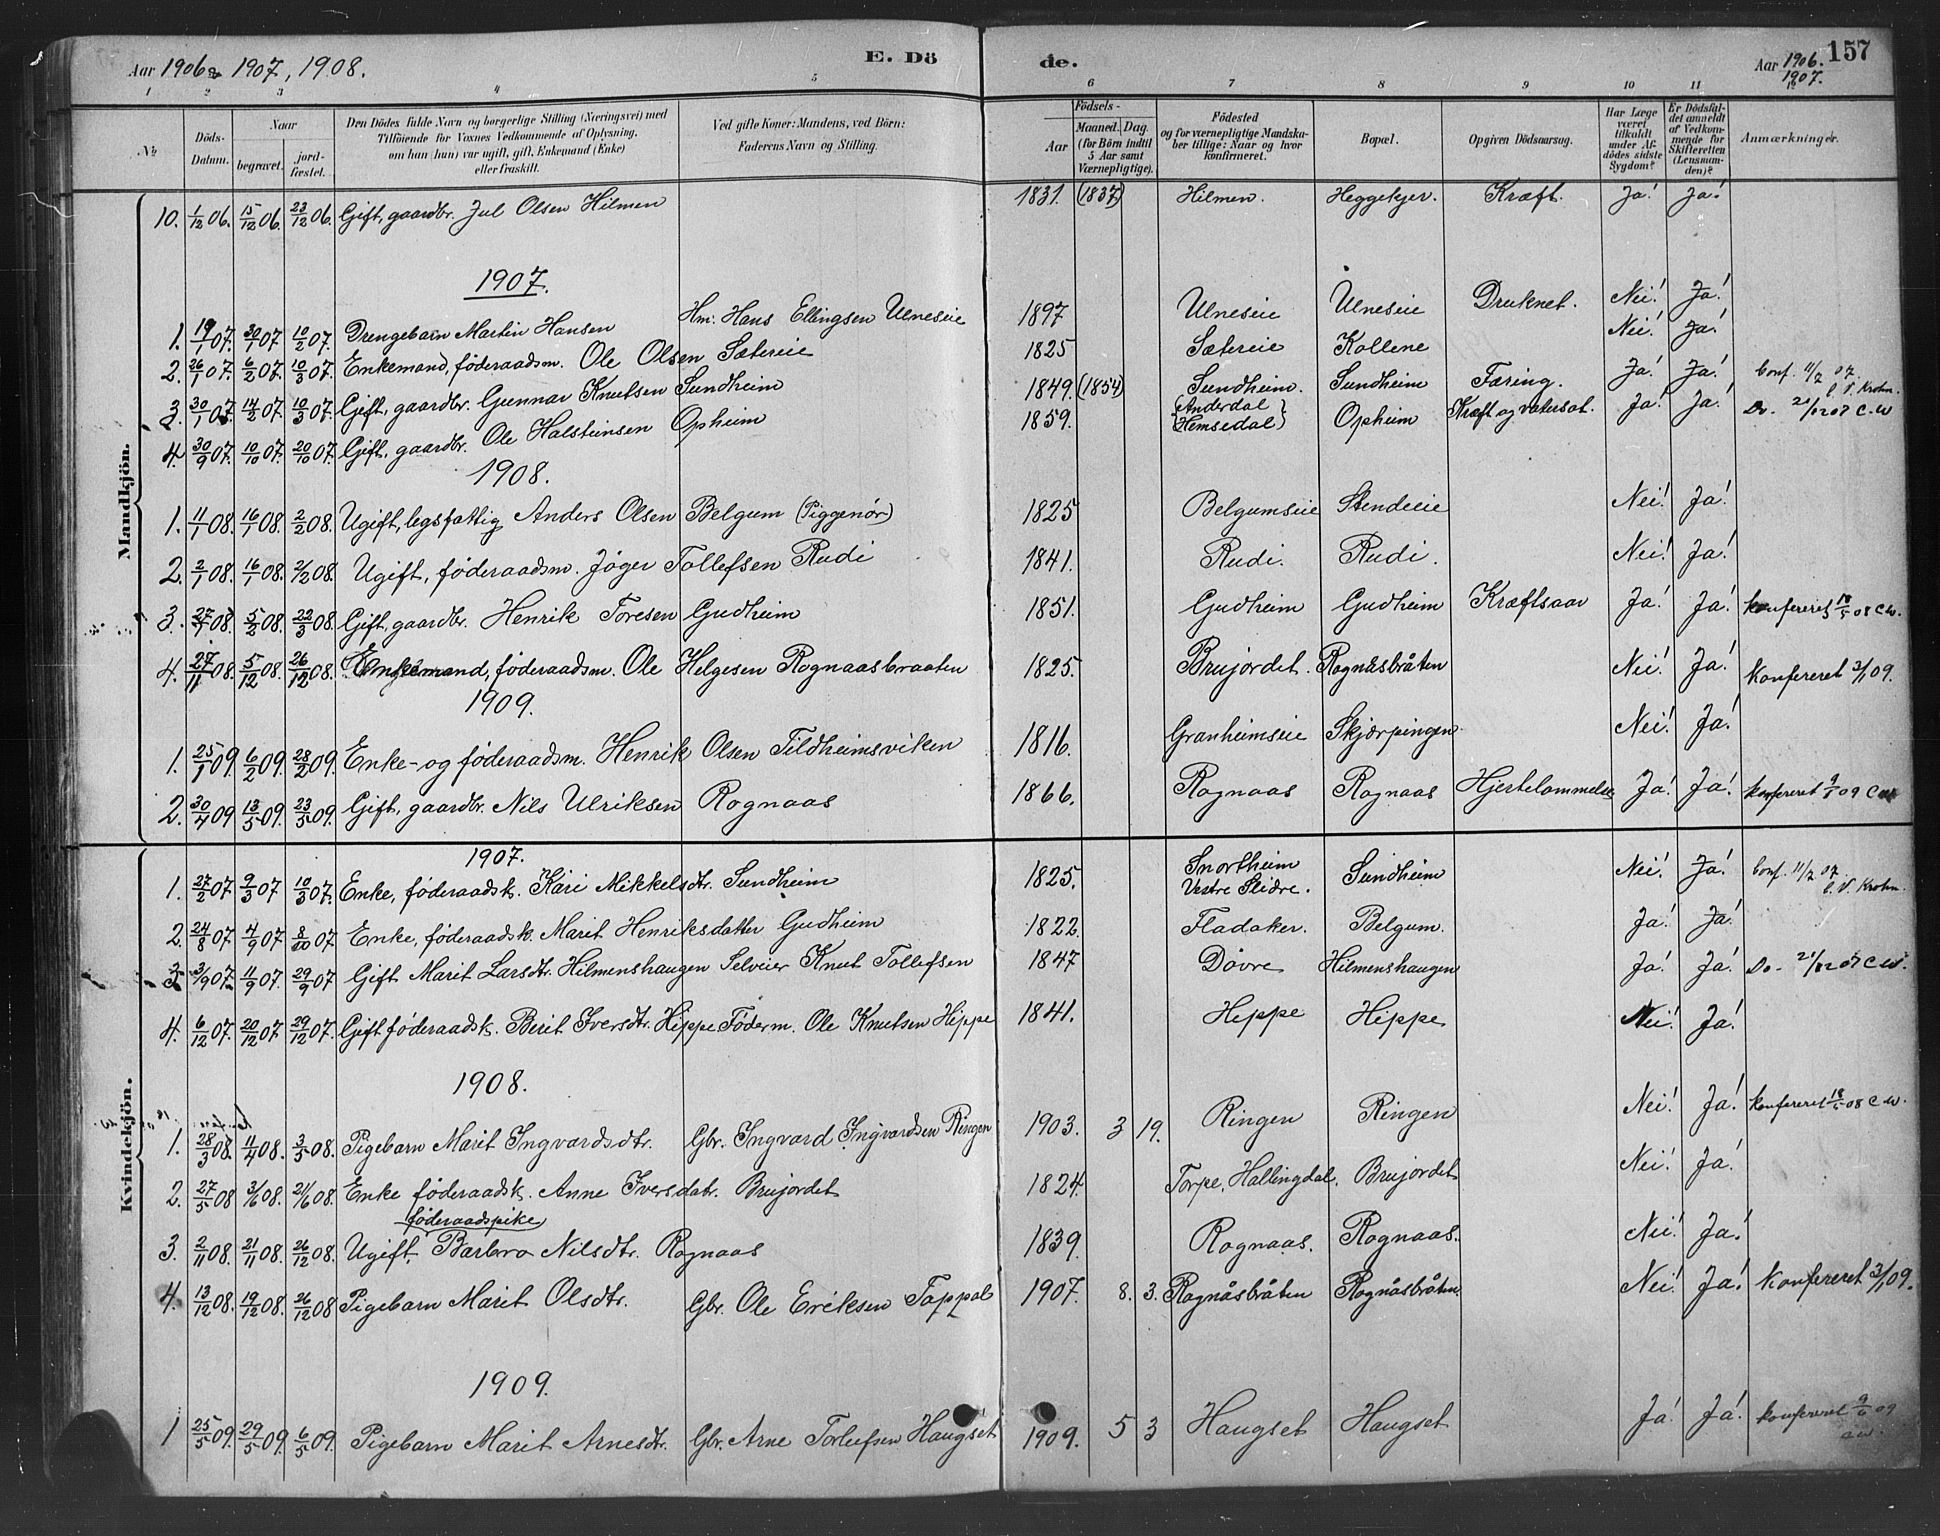 Aar 1906 1907, 1908. E. Dö
de. Aar 1906. 1907. 157
1 2 3 4 5 6 7 8 9 10 11
№ Döds-Datum. Naar begravet. jord-fæstet. Den Dödes fulde Navn og borgerlige Stilling (Næringsvei) med Tilföiende for Voxnes Vedkommende af Oplysning, om han (hun) var ugift, gift, Enkemand (Enke) eller fraskilt. Ved gifte Koner: Mandens, ved Börn: Faderens Navn og Stilling. Födsels- Aar Maaned. Dag. (for Börn indtil 5 Aar samt Værnepligtige). Födested og for værnepligtige Mandskaber tillige: Naar og hvor konfirmeret. Bopæl. Opgiven Dödsaarsag. Har Læge været tilkaldt under Afdödes sidste Sygdom? Er Dödsfaldet anmeldt af Vedkommende for Skifteretten (Lensmanden)? Anmærkninger.
Mandkjön.
10. 1/12 06. 15/12 06. 23/12 06. Gift, gaardbr. Jul Olsen Hilmen 1831. (1837) Hilmen. Heggekjer. Kræft. Ja! Ja!
1907.
1. 19/1 07. 30/1 07. 10/2 07. Drengebarn Martin Hansen Hm. Hans Ellingsen Ulneseie 1897 Ulneseie Ulneseie Druknet. Nei! Ja!
2. 26/1 07. 6/2 07. 10/3 07. Enkemand, føderaadsm. Ole Olsen Sætereie 1825 Sætereie Kollene Nei! Ja!
3. 30/1 07. 14/2 07. 10/3 07. Gift, gaardbr. Gunnar Knutsen Sundheim 1849. (1854) Sundheim. Sundheim Tæring. Ja! Ja! Conf. 11/7 07. C. V. Krohn.
4. 30/9 07. 10/10 07. 20/10 07. Gift, gaardbr. Ole Halsteinsen Opheim 1859. (Anderdal Hemsedal) Opheim Kræft og vatersot. Ja! Ja! Do. 21/12 07 C. W
1908.
1. 11/1 08. 16/1 08. 2/2 08. Ugift, legsfattig Anders Olsen Belgum (Piggenør) 1825 Belgumseie Stendeeie Nei! Ja!
2. 2/1 08. 16/1 08. 2/2 08. Ugift, føderaadsm. Jøger Tollefsen Rudi 1841. Rudi. Rudi. Nei! Ja!
3. 27/1 08. 5/2 08. 22/3 08. Gift, gaardbr. Henrik Toresen Gudheim 1851. Gudheim Gudheim Kræftsaar Ja! Ja! Konfereret 18/5 08 C. W.
4. 27/11 08. 5/12 08. 26/12 08. Enkemand, føderaadsm. Ole Helgesen Rognaasbraaten 1825. Brujordet. Rognåsbråten Nei! Ja! Konfereret 3/1 09.
1909.
1. 25/1 09. 6/2 09. 28/2 09. Enke- og føderaadsm. Henrik Olsen Tildheimsviken 1816. Granheimseie Skjærpingen Nei! Ja!
2. 30/4 09 13/5 09. 23/5 09. Gift, gaardbr. Nils Ulriksen Rognaas 1866. Rognaas Rognaas Hjertelammelse Ja! Ja! Konfereret 9/6 09 C W
Kvindekjön.
1907.
1. 27/2 07. 9/3 07 10/3 07. Enke, føderaadsk. Kari Mikkelsdtr. Sundheim 1825. Snortheim Vestre Slidre. Sundheim Nei! Ja! Conf. 11/7 07. C. V. Krohn.
2. 24/8 07. 4/9 07. 8/10 07. Enke, føderaadsk. Marit Henriksdatter Gudheim 1822. Fladaker. Belgum. Ja! Ja!
3. 3/9 07. 11/9 07. 29/9 07 Gift Marit Larsdtr. Hilmenshaugen Selveier Knut Tollefsen 1847 Dovre Hilmenshaugen Ja! Ja! Do- 21/12 07 C. W.
4. 6/12 07. 20/12 07. 29/12 07. Gift føderaadsk. Berit Iversdtr. Hippe Føderm. Ole Knutsen Hippe 1841. Hippe Hippe Nei! Ja!
1908.
1. 28/3 08. 11/4 08. 3/5 08. Pigebarn Marit Ingvardsdtr. Gbr. Ingvard Ingvardsen Ringen 1903. 3 19. Ringen Ringen Nei! Ja! Konfereret 18/5 08 C. W.
2. 27/5 08 3/6 08. 21/6 08. Enke føderaadsk. Anne Iversdatr. Brujordet 1824. Torpe, Hallingdal. Brujordet Nei! Ja!
føderaadspike
3. 2/11 08. 21/11 08. 26/12 08. Ugift, Barbro Nilsdtr. Rognaas 1839. Rognaas. Rognaas. Nei! Ja!
4. 13/12 08. 19/12 08. 26/12 08 Pigebarn Marit Olsdtr. Gbr. Ole Eriksen Tappal 1907. 8. 3. Rognåsbråten Rognåsbråten Nei! Ja! Konfereret 3/1 09.
1909.
1 25/5 09. 29/5 09. 6/5 09. Pigebarn Marit Arnesdtr. Gbr. Arne Torleifsen Haugset 1909. 5 3 Haugset Haugset Ja! Ja! Konfereret 9/6 09 C W.